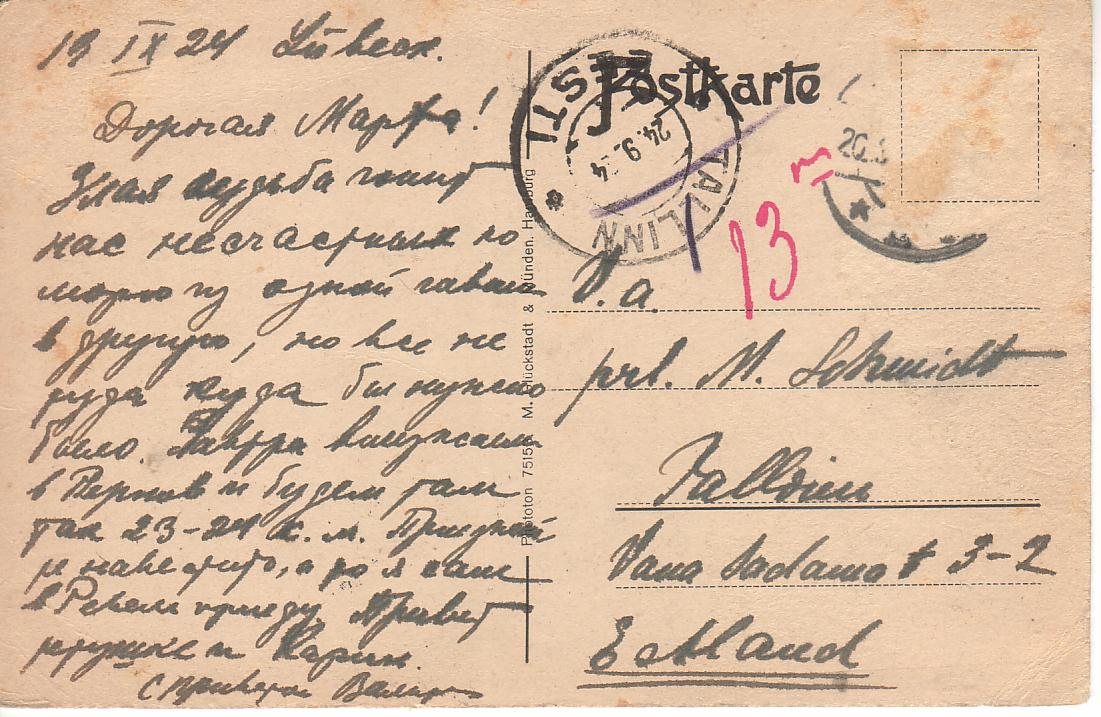 19 IX 24 Lübeck.
Дорогая Марфа!
Злая судьба гонит
нас несчастных по
морю из одной гавани
в другую, но все не
туда куда бы нужно
было. Завтра выезжаем
в Пернов и будем там
так 23-24 с. м. Приезжай
навестить, а то я сам
в Ревель приеду. Привет
и Карин.
С приветом
Postkarte
EESTI
TALLINN
24. 9. 24
13
Phototon 75155 M. Glückstadt & Münden. Hamburg
prl. M. Schmidt
Tallinn
Vana Sadama 3-2
Estland